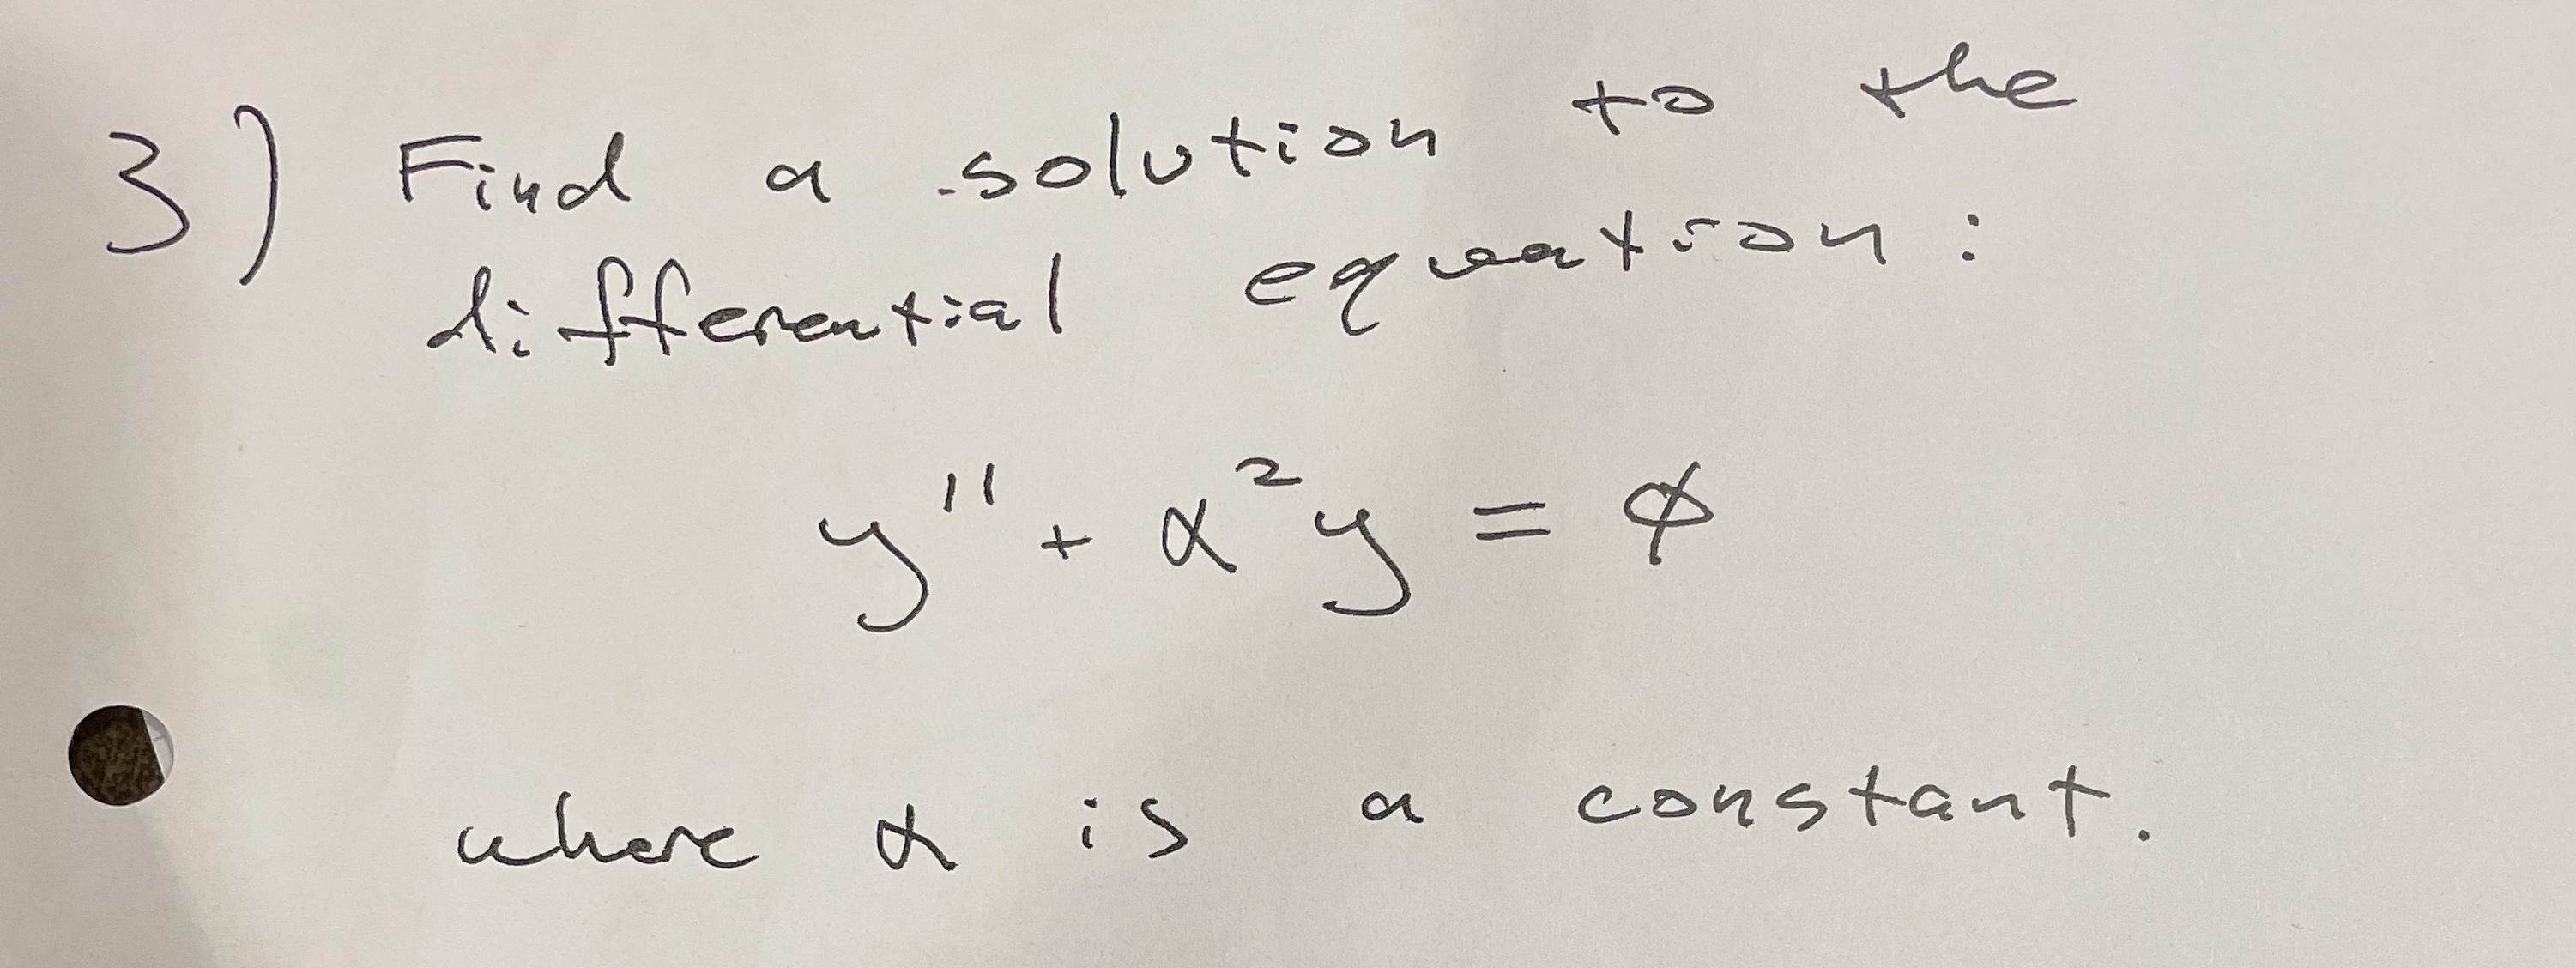 3) Find a solution to the
differential equation:
y'' + α²y = ϕ
where α is a constant.